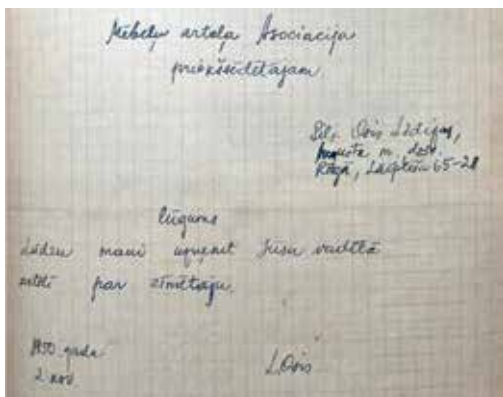 Mēbeļu arteļa Asociacija
priekšsēdētājam.
Pils. Ošis Lidijas,
Augusta m. dzīv.
Rīgā, Lāčplēša 65-21
lūgums
Lūdzu mani uzņemt Jūsu vadītā
artelī par zīmētāju.
1950. gada
2. nov.
LOsis